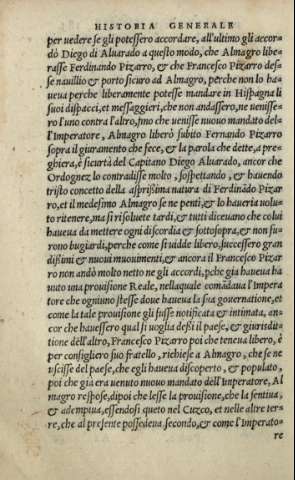 HISTORIA GENERALE
per uedere se gli potessero accordare, all'ultimo gli accor-
dò Diego di Aluarado a questo modo, che Almagro libe-
rasse Ferdinando Pizarro, & che Francesco Pizarro des-
se nauilio & porto sicuro ad Almagro, perche non lo ha-
ueua perche liberamente potesse mandare in Hispagna li
suoi dispacci, et messaggieri, che non andassero, ne uenisse-
ro l'uno contra l'altro, fino che uenisse nuouo mandato del-
l'Imperatore, Almagro liberò subito Fernando Pizarro
sopra il giuramento che fece, & la parola che dette, a pre-
ghiera, è sicurtà del Capitano Diego Aluarado, ancor che
Ordognez lo contradisse molto, sospettando, & hauendo
tristo concetto della asprißima natura di Ferdinādo Pizar
ro, et il medesimo Almagro se ne pentì, & lo haueria uolu-
to ritenere, ma si risoluete tardi, & tutti diceuano che colui
haueua da mettere ogni discordia & sottosopra, & non fu-
rono bugiardi, perche come si uidde libero, successero gran
dißimi & nuoui mouimenti, & ancora il Francesco Pizar
ro non andò molto netto ne gli accordi, pche gia haueua ha
uuto una prouisione Reale, nella quale comādaua l'Impera
tore che ogniuno stesse doue haueua la sua gouernatione, et
come la tale prouisione gli fusse notificata & intimata, an-
cor che hauessero qual si uoglia deßi il paese, & giurisdit-
tione dell'altro, Francesco Pizarro poi che teneua libero, è
per consigliero suo fratello, richiese a Almagro, che se ne
uscisse del paese, che egli haueua discoperto, & populato,
poi che già era uenuto nuouo mandato dell'Imperatore, Al
magro respose, dipoi che lesse la prouisione, che la sentiua,
& adempiua, essendosi queto nel Cuzco, et nelle altre ter-
re, che al presente possedeua, secondo, & come l'Imperato-
re